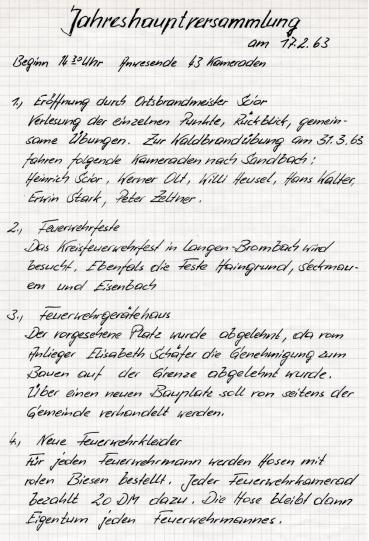 Jahreshauptversammlung
am 17.2.63
Beginn 14 30 Uhr Anwesende 43 Kameraden
1., Eröffnung durch Ortsbrandmeister Scior
Verlesung der einzelnen Punkte, Rückblick, gemein-
same Übungen. Zur Waldbrandübung am 31.3.63
fahren folgende Kameraden nach Sandbach:
Heinrich Scior, Werner Olt, Willi Heusel, Hans Walter,
Erwin Stark, Peter Zeltner.
2., Feuerwehrfeste
Das Kreisfeuerwehrfest in Langen-Brombach wird
besucht. Ebenfals die Feste Haingrund, Seckmau-
ern und Eisenbach
3., Feuerwehrgerätehaus
Der vorgesehene Platz wurde abgelehnt, da vom
Anlieger Elisabeth Schäfer die Genehmigung zum
Bauen auf der Grenze abgelehnt wurde.
Über einen neuen Bauplatz soll von seitens der
Gemeinde verhandelt werden.
4., Neue Feuerwehrkleider
Für jeden Feuerwehrmann werden Hosen mit
roten Biesen bestellt. Jeder Feuerwehrkamerad
bezahlt 20 DM dazu. Die Hose bleibt dann
Eigentum jeden Feuerwehrmannes.